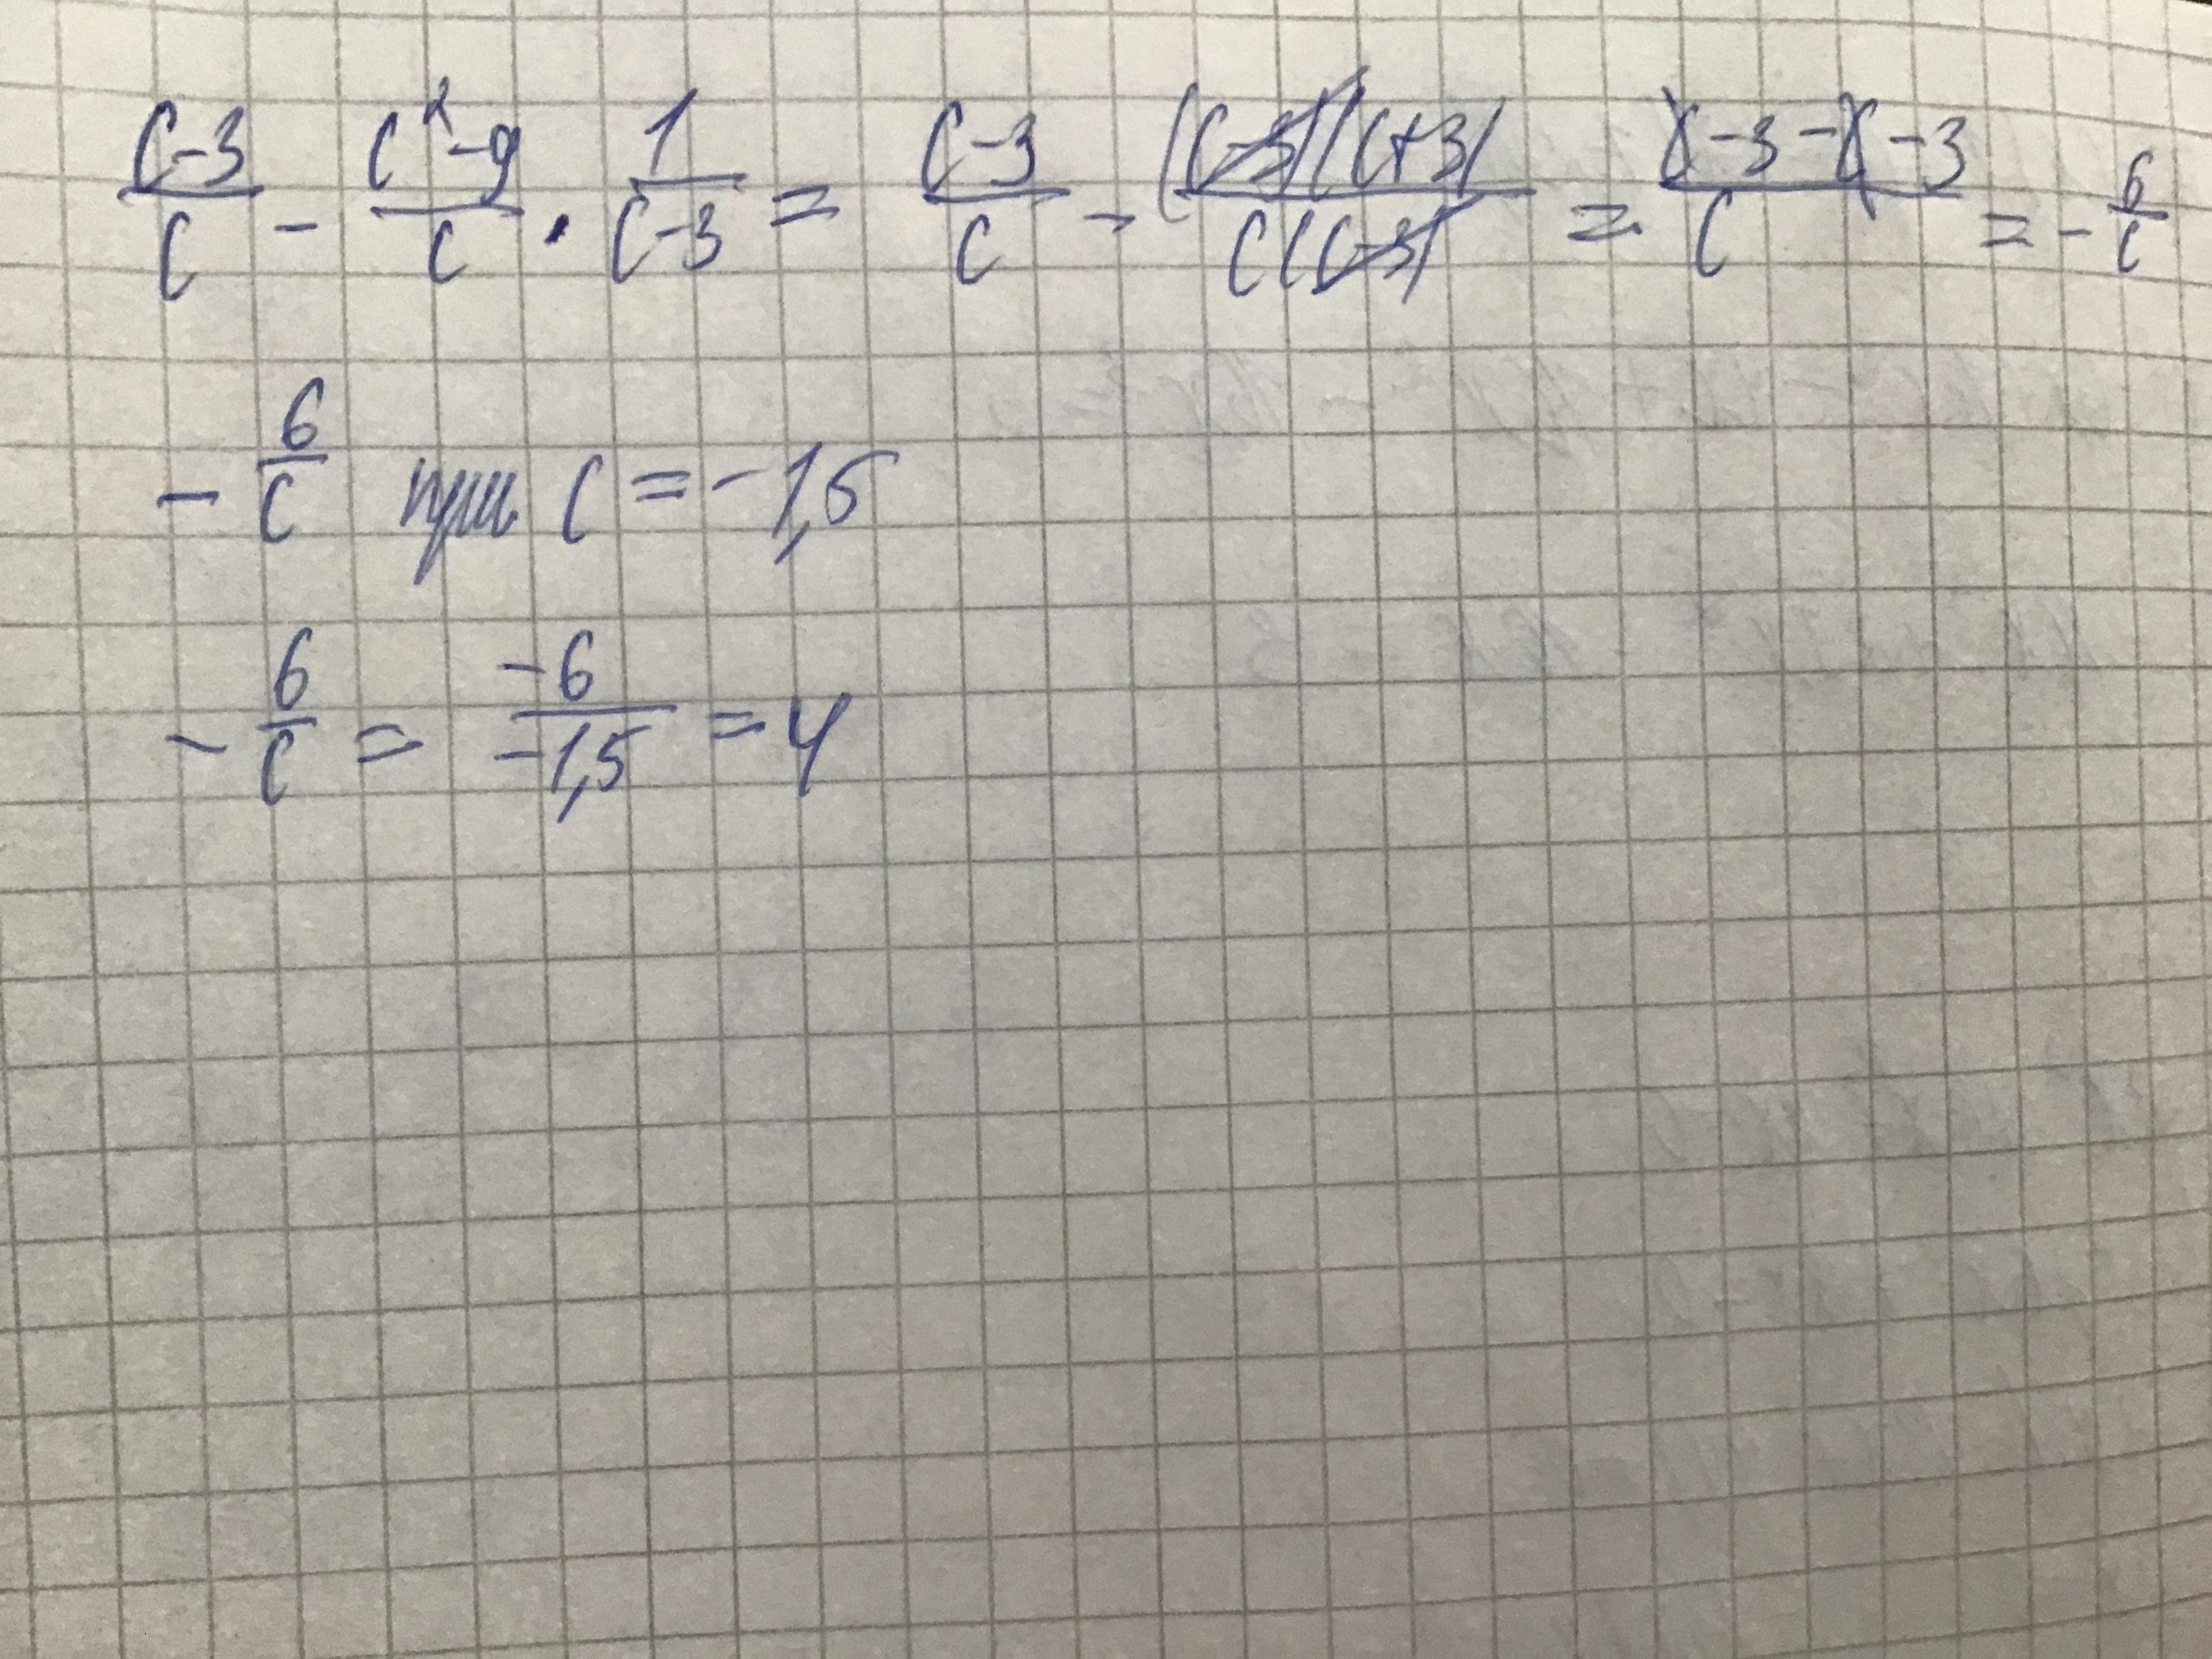 (c-3)/c - (c²-9)/c · 1/(c-3) = (c-3)/c - ((c-3)(c+3))/(c(c-3)) = (c-3-c-3)/c = - 6/c
- 6/c при c = -1,5
- 6/c = -6/-1,5 = 4